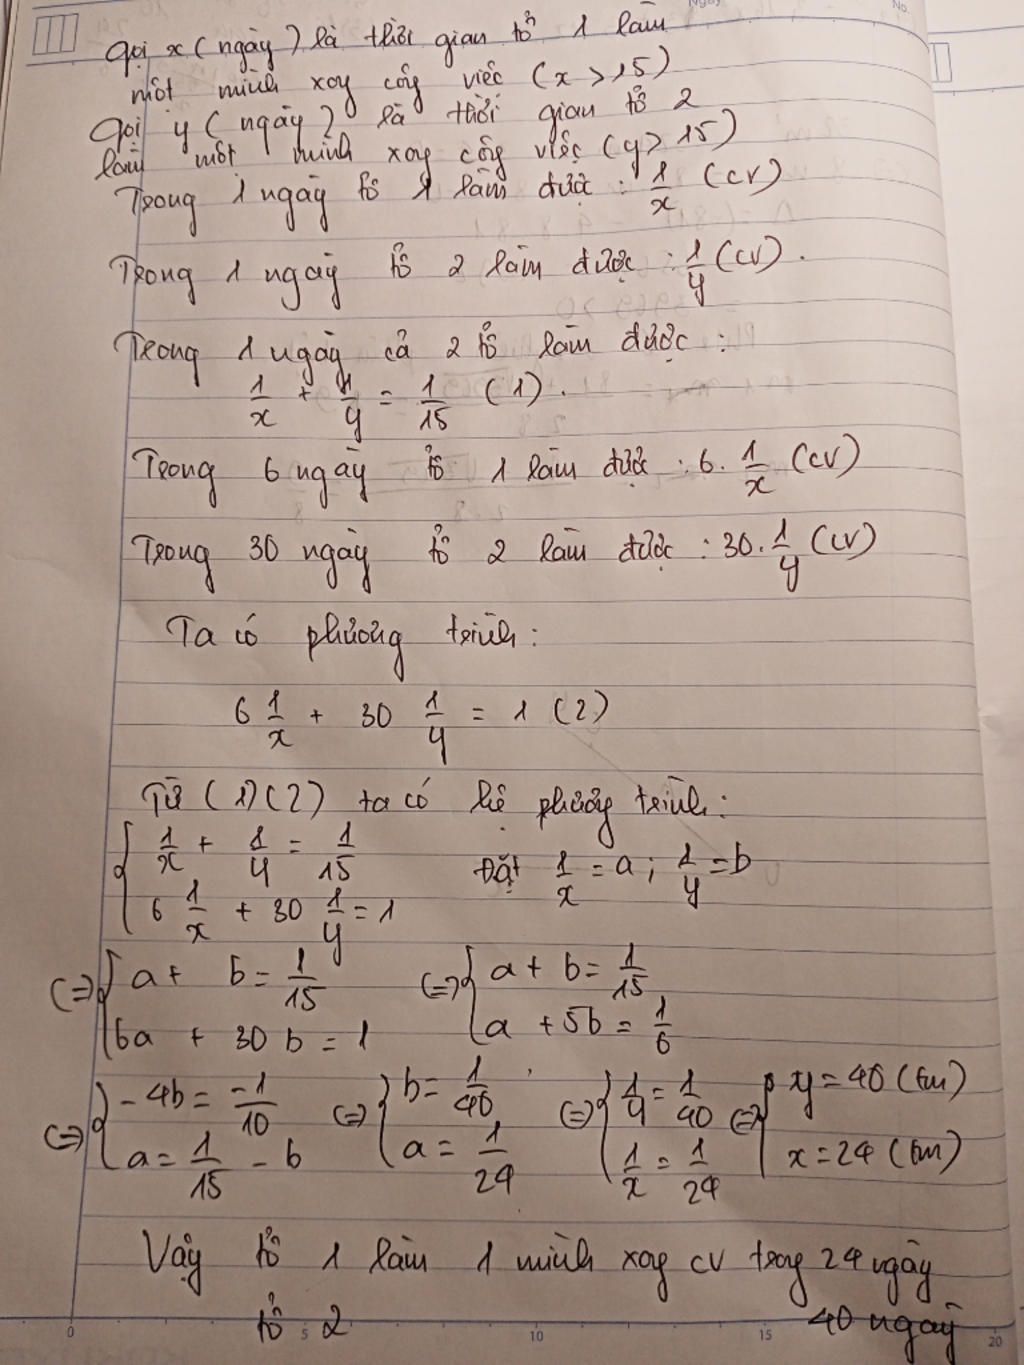 Gọi x (ngày) là thời gian tổ 1 làm
một mình xong công việc (x > 15)
Gọi y (ngày) là thời gian tổ 2
làm một mình xong công việc (y > 15)
Trong 1 ngày tổ 1 làm được : 1/x (CV)
Trong 1 ngày tổ 2 làm được : 1/y (CV).
Trong 1 ngày cả 2 tổ làm được :
1/x + 1/y = 1/15 (1).
Trong 6 ngày tổ 1 làm được : 6. 1/x (CV)
Trong 30 ngày tổ 2 làm được : 30. 1/y (CV)
Ta có phương trình :
6 1/x + 30 1/y = 1 (2)
Từ (1) (2) ta có hệ phương trình :
{ 1/x + 1/y = 1/15 Đặt 1/x = a ; 1/y = b
6 1/x + 30 1/y = 1
(=) { a + b = 1/15 (=) { a + b = 1/15
6a + 30 b = 1 a + 5b = 1/6
(=) { - 4b = -1/10 (=) { b = 1/40 (=) { 1/y = 1/40 (=) { y = 40 (tm)
a = 1/15 - b a = 1/24 1/x = 1/24 x = 24 (tm)
Vậy tổ 1 làm 1 mình xong CV trong 24 ngày
tổ 2 40 ngày
0 5 10 15 20